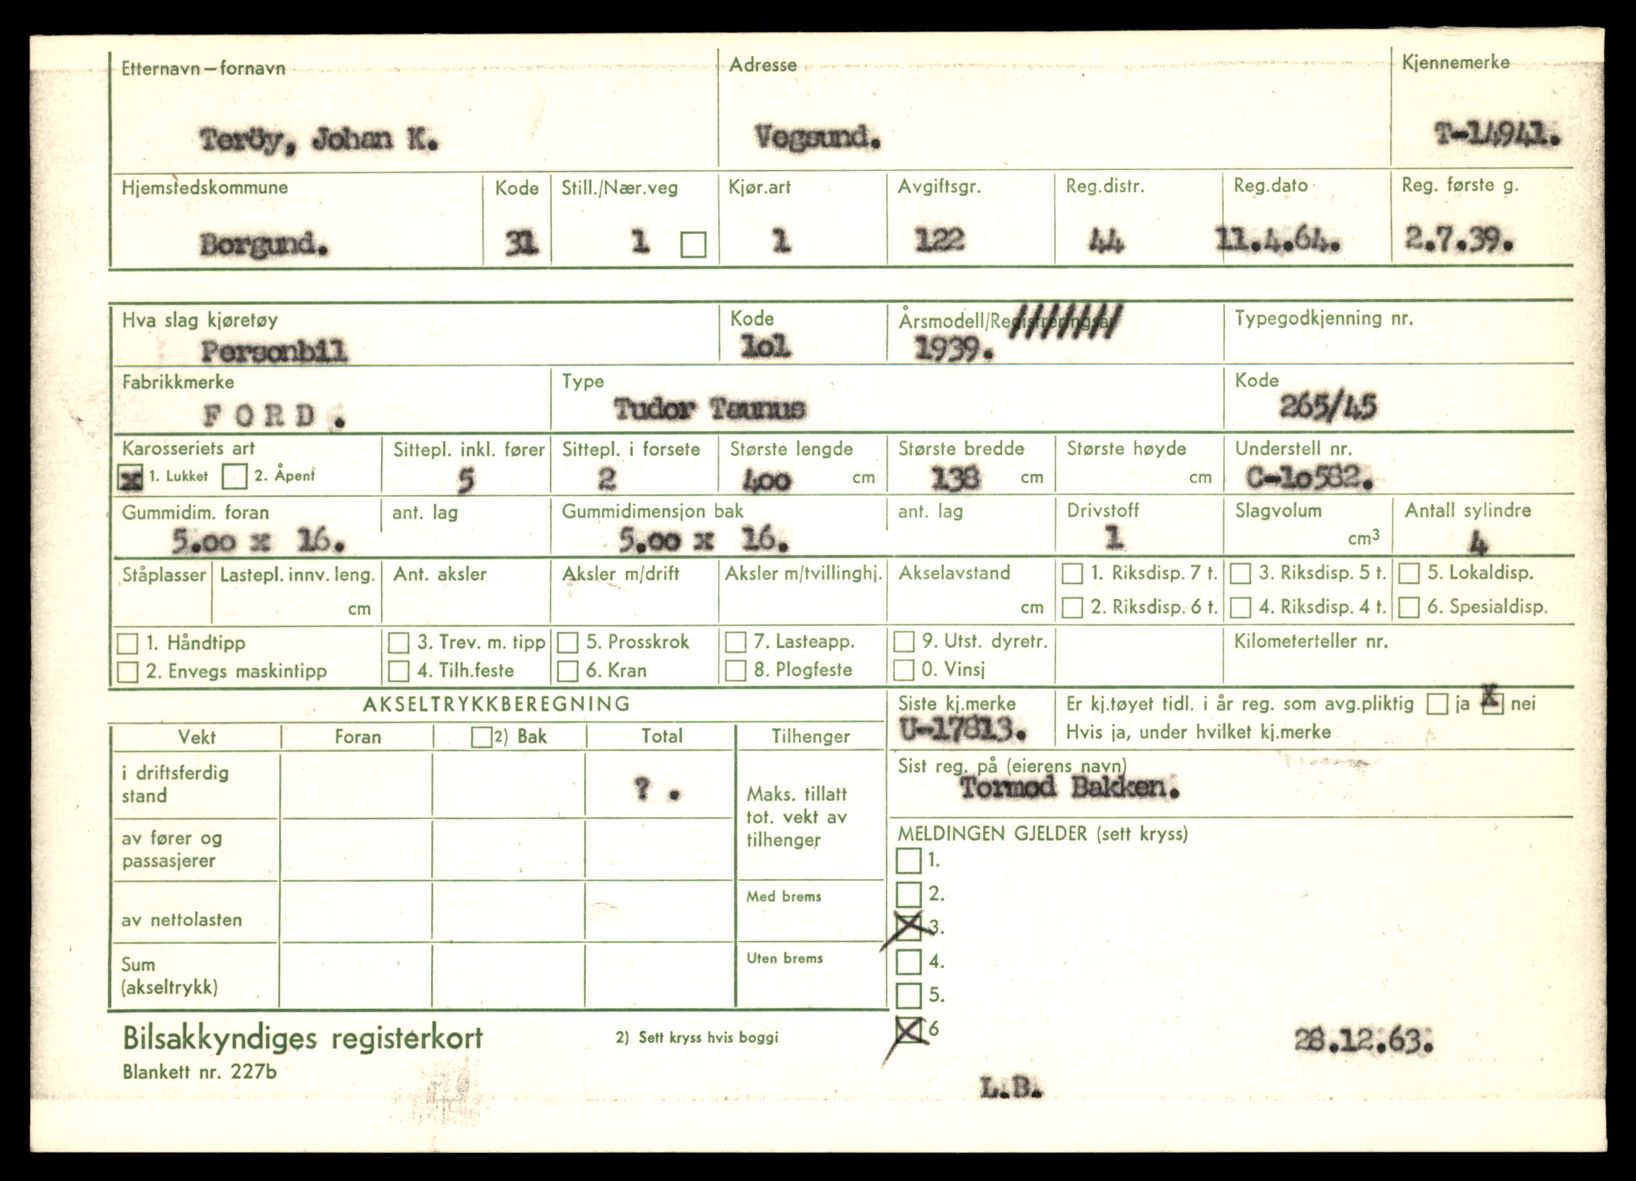 Etternavn—fornavn Adresse Kjennemerke
Teröy, Johan K. Vegsund. T-14941.
Hjemstedskommune Kode Still./Nær.veg Kjør.art Avgiftsgr. Reg.distr. Reg.dato Reg. første g.
Borgund. 31 1 1 122 44 11.4.64. 2.7.39.
Hva slag kjøretøy Kode Årsmodell/Registreringsår Typegodkjenning nr.
Personbil lol 1939.
Fabrikkmerke Type Kode
FORD. Tudor Taunus 265/45
Karosseriets art Sittepl. inkl. fører Sittepl. i forsete Største lengde Største bredde Største høyde Understell nr.
x 1. Lukket 2. Åpent 5 2 400 cm 138 cm cm C-lo582.
Gummidim. foran ant. lag Gummidimensjon bak ant. lag Drivstoff Slagvolum Antall sylindre
5.00 x 16. 5.00 x 16. 1 cm3 4
Ståplasser Lastepl. innv. leng. Ant. aksler Aksler m/drift Aksler m/tvillinghj. Akselavstand 1. Riksdisp. 7 t. 3. Riksdisp. 5 t. 5. Lokaldisp.
cm cm 2. Riksdisp. 6 t. 4. Riksdisp. 4 t. 6. Spesialdisp.
1. Håndtipp 3. Trev. m. tipp 5. Prosskrok 7. Lasteapp. 9. Utst. dyretr. Kilometerteller nr.
2. Envegs maskintipp 4. Tilh.feste 6. Kran 8. Plogfeste 0. Vinsj
AKSELTRYKKBEREGNING Siste kj.merke Er kj.tøyet tidl. i år reg. som avg.pliktig ja x nei
U-17813. Hvis ja, under hvilket kj.merke
Vekt Foran 2) Bak Total Tilhenger
Sist reg. på (eierens navn)
Tormod Bakken.
i driftsferdig stand ? .
Maks. tillatt tot. vekt av tilhenger
av fører og passasjerer
MELDINGEN GJELDER (sett kryss)
1.
2.
X 3.
4.
5.
X 6
Med brems
av nettolasten
Uten brems
Sum (akseltrykk)
28.12.63.
Bilsakkyndiges registerkort 2) Sett kryss hvis boggi
Blankett nr. 227b
L.B.